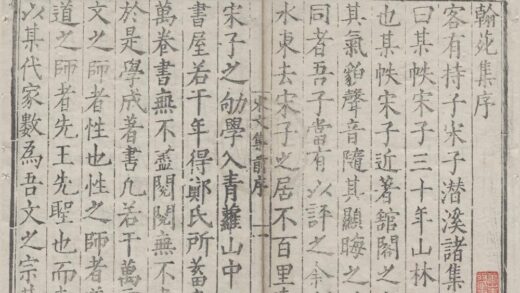 翰苑集序
客有持子宋子潜溪諸集
曰某帙宋子三十年山林
也某帙宋子近著舘閣之
其氣貌聲音隨其顯晦之
同者吾子當有以評之余
水東去宋子之居不百里
宋文集前序 一
宋子之幼學入青蘿山中
書屋若干年得鄭氏所蓄
萬卷書無不盡閱閱無不
於是學成著書凡若干萬
文之師者性也性之師者
道之師者先王先聖也而
以某代家數為吾文之宗